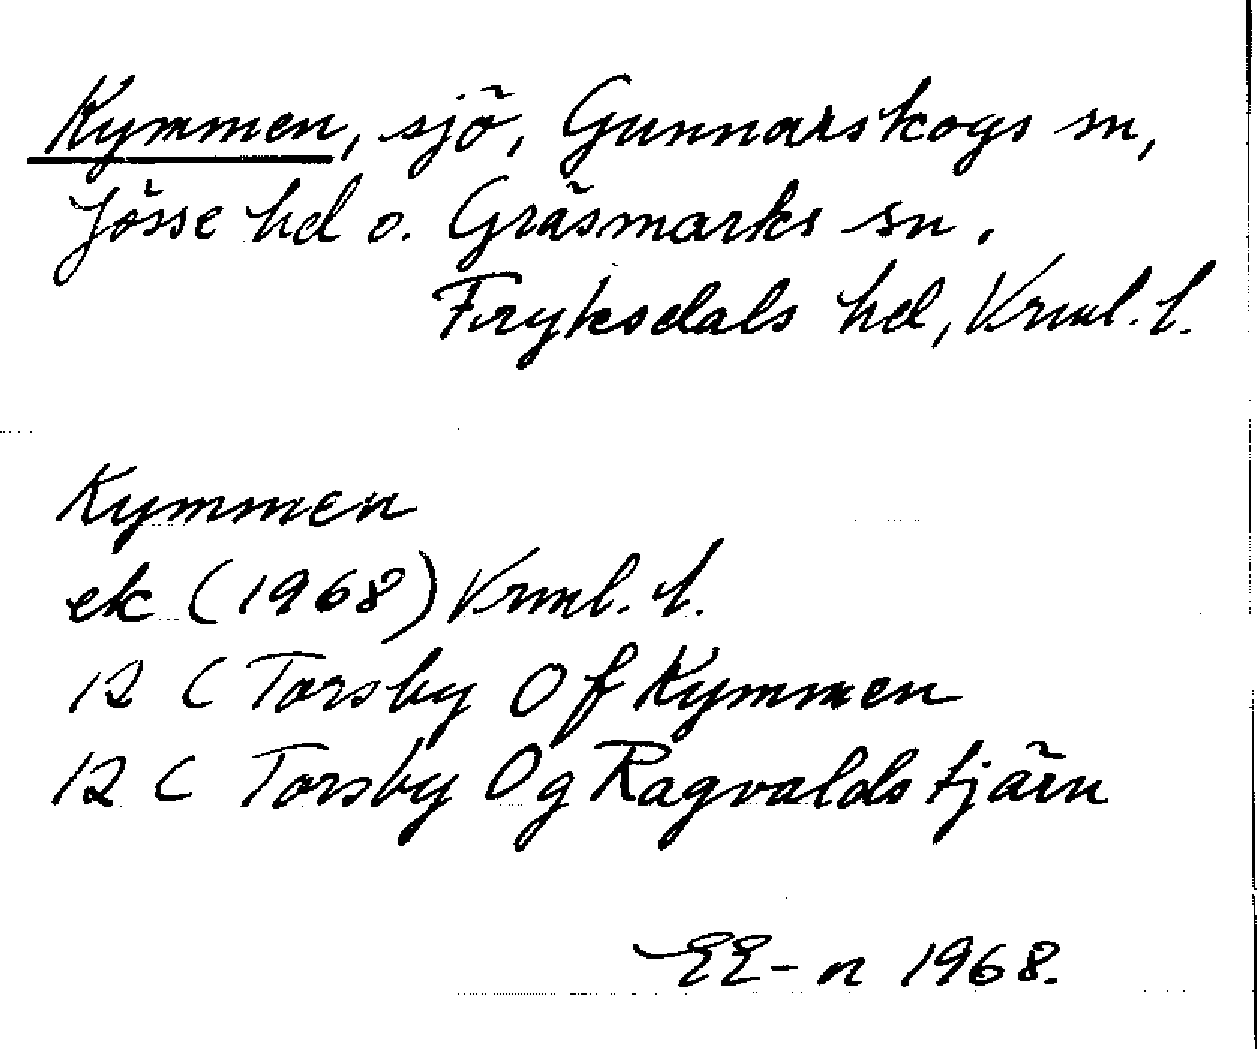 Kymmen, sjö, Gunnarskogs sn,
Jösse hd o. Gräsmarks sn.
Fryksdals hd, Vrml. l.
Kymmen
ek (1968) Vrml. l.
12 C Torsby 0 f Kymmen
12 C Torsby 0g Ragvaldstjärn
EE-n 1968.